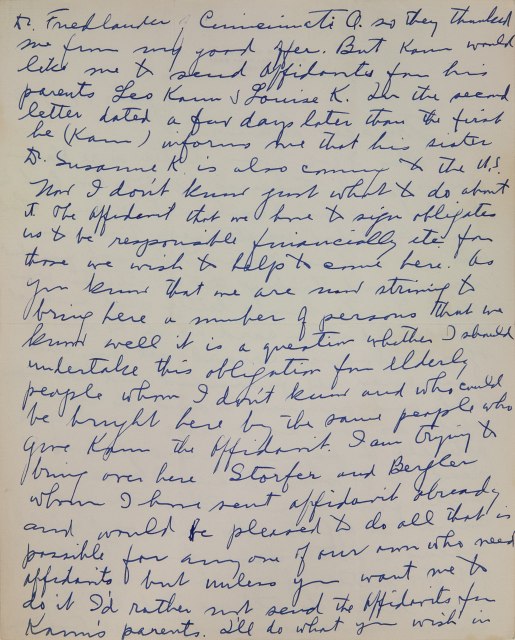 Dr. Friedlander of Cincincinati O. so they thanked
me for my good offer. But Kann would
like me to send affidavits for his
parents Leo Kann & Louise K. In the second
letter dated a few days later than the first
he (Kann) informs me that his sister
Dr. Susanne K. is also coming to the U.S.
Now I don't know just what to do about
it. The affidavit that we have to sign obligates
us to be responsible financially etc for
those we wish to help to come here. As
you know that we are now striving to
bring here a number of persons that we
know well it is a question whether I should
undertake this obligation for elderly
people whom I don't know and who could
be brought here by the same people who
gave Kann the affidavit. I am trying to
bring over here Storfer and Bergler
whom I have sent affidavit already
and would be pleased to do all that is
possible for any one of our own who need
affidavits but unless you want me to
do it I'd rather not send the affidavits for
Kann's parents. I'll do what you wish in